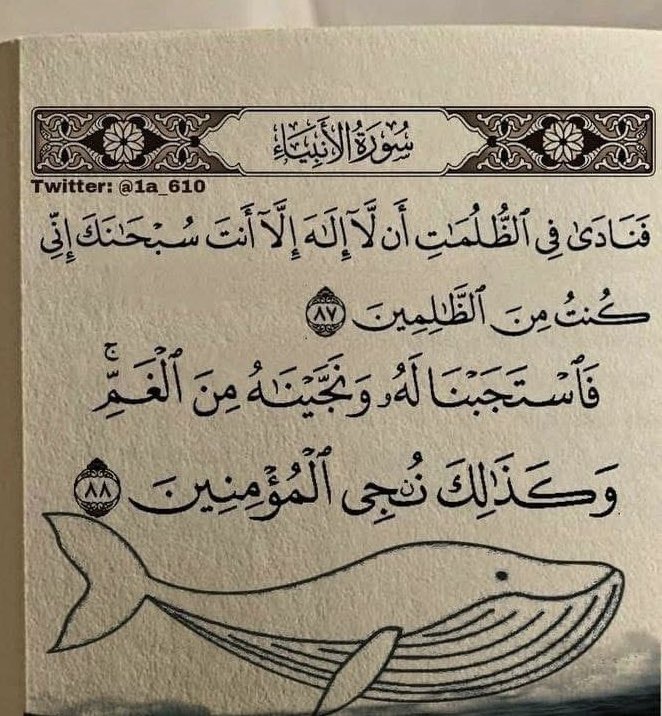 سُورَةُ الأَنبِيَاءِ
Twitter: @1a_610
فَنَادَىٰ فِي ٱلظُّلُمَٰتِ أَن لَّآ إِلَٰهَ إِلَّآ أَنتَ سُبْحَٰنَكَ إِنِّي
كُنتُ مِنَ ٱلظَّٰلِمِينَ ٨٧
فَٱسْتَجَبْنَا لَهُۥ وَنَجَّيْنَٰهُ مِنَ ٱلْغَمِّ ۚ
وَكَذَٰلِكَ نُۨجِي ٱلْمُؤْمِنِينَ ٨٨